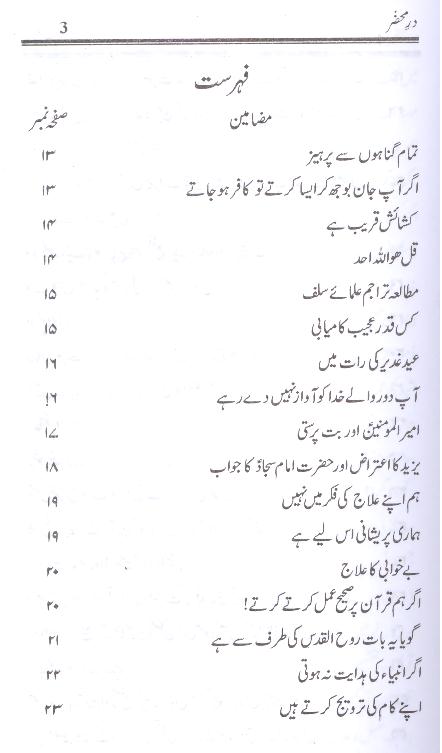 در محضر 3
فہرست
مضامین صفحہ نمبر
تمام گناہوں سے پرہیز ۱۳
اگر آپ جان بوجھ کر ایسا کرتے تو کافر ہو جاتے ۱۳
کشائش قریب ہے ۱۴
قل ھو اللہ احد ۱۴
مطالعہ تراجم علمائے سلف ۱۵
کس قدر عجیب کامیابی ۱۵
عید غدیر کی رات میں ۱۶
آپ دور والے خدا کو آواز نہیں دے رہے ۱۶
امیر المومنینؑ اور بت پرستی ۱۷
یزید کا اعتراض اور حضرت امام سجادؑ کا جواب ۱۸
ہم اپنے علاج کی فکر میں نہیں ۱۹
ہماری پریشانی اس لیے ہے ۱۹
بے خوابی کا علاج ۲۰
اگر ہم قرآن پر صحیح عمل کرتے کرتے! ۲۰
گویا یہ بات روح القدس کی طرف سے ہے ۲۱
اگر انبیاء کی ہدایت نہ ہوتی ۲۲
اپنے کام کی ترویج کرتے ہیں ۲۳